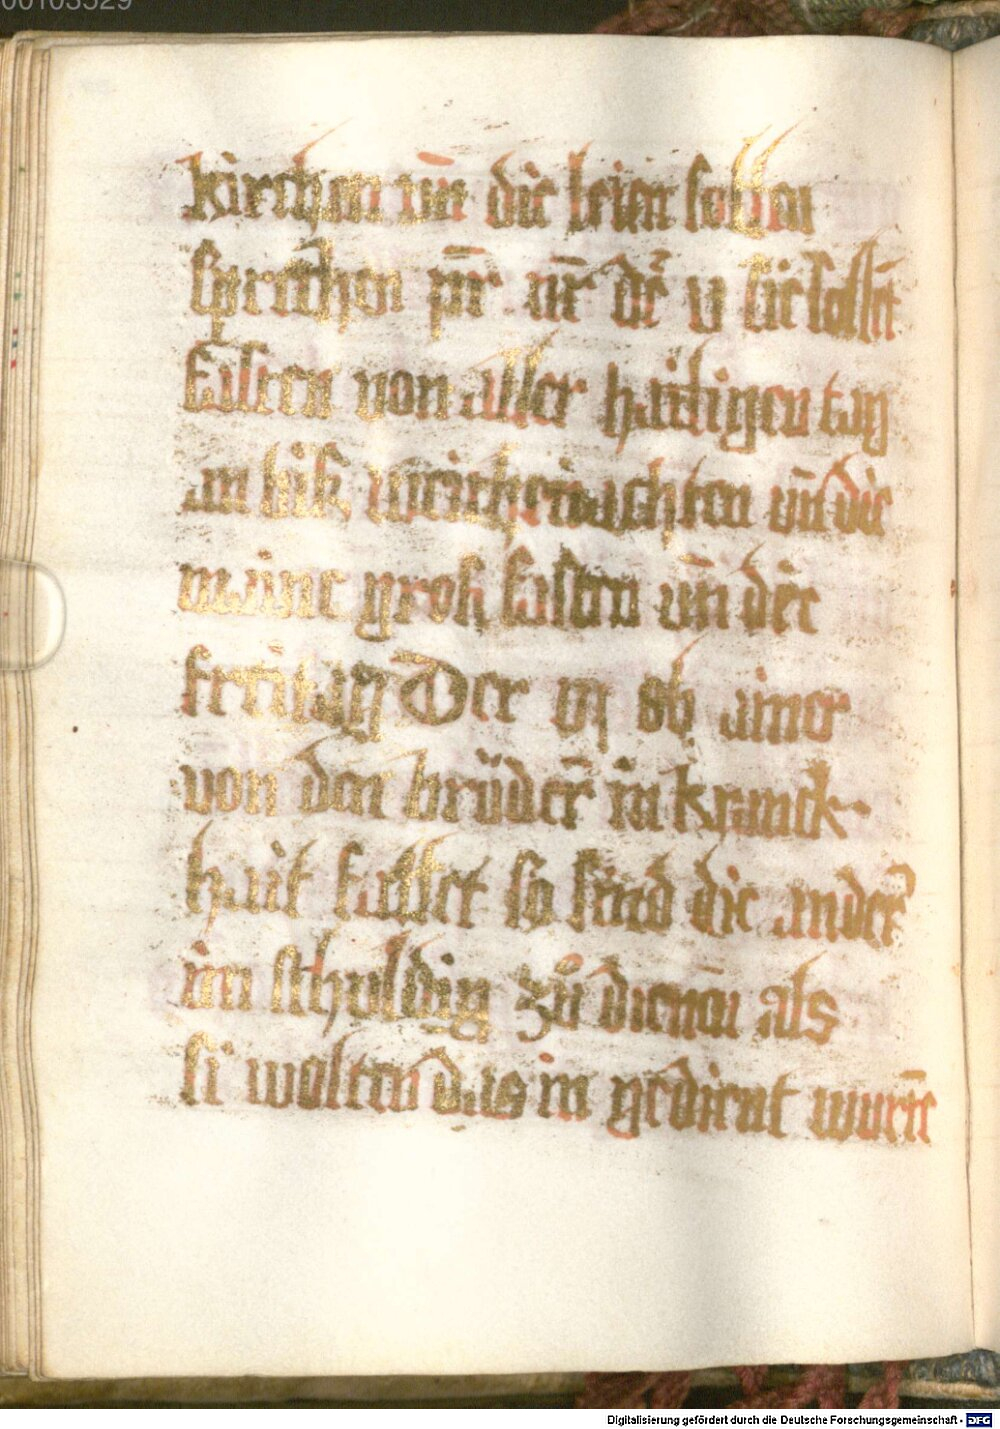 00103529
kirchen vn̄ die leien sollen
sprechen pr̄ nr̄ dē v sie sollēt
fasten von aller hailigen tag
an biſz weichenachten vn̄ die
maine grosz fasten vn̄ die
freitag Der vj ob ainer
von den brüder̄ in kranck
hait fallet so sind die ander̄
im schuldig zů dienen als
si wolten das in gedient wurē
Digitalisierung gefördert durch die Deutsche Forschungsgemeinschaft - DFG